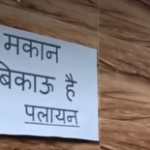 मकान
बिकाऊ है
पलायन